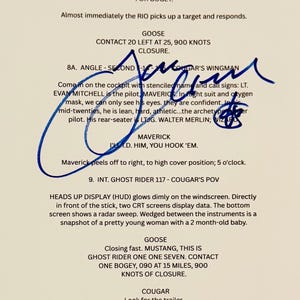 Almost immediately the RIO picks up a target and responds.
GOOSE
CONTACT 20 LEFT AT 25, 900 KNOTS
CLOSURE.
8A. ANGLE - SECOND WINGMAN
Come in on the cockpit with stenciled name and call signs: LT.
EVAN MITCHELL is the pilot, MAVERICK. In flight suit and oxygen
mask, we can only see his eyes, they are confident. In
mid-twenties, he is lean, hard, athletic...the archetypal
pilot. His rear-seater is LTJG. WALTER MERLIN;
MAVERICK
HIM, YOU HOOK 'EM.
Maverick peels off to right, to high cover position; 5 o'clock.
9. INT. GHOST RIDER 117 - COUGAR'S POV
HEADS UP DISPLAY (HUD) glows dimly on the windscreen. Directly
in front of the stick, two CRT screens display data. The bottom
screen shows a radar sweep. Wedged between the instruments is a
snapshot of a pretty young woman with a 2 month-old baby.
GOOSE
Closing fast. MUSTANG, THIS IS
GHOST RIDER ONE ONE SEVEN. CONTACT
ONE BOGEY, 090 AT 15 MILES, 900
KNOTS OF CLOSURE.
COUGAR
Look for the trailer.